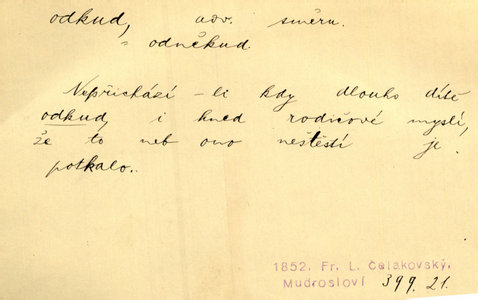 odkud, adv. směru.
= odněkud.
Nepřichází-li kdy dlouho dítě
odkud, i hned rodičové myslí,
že to neb ono neštěstí je
potkalo.
1852. Fr. L. Čelakovský,
Mudrosloví 399.21.